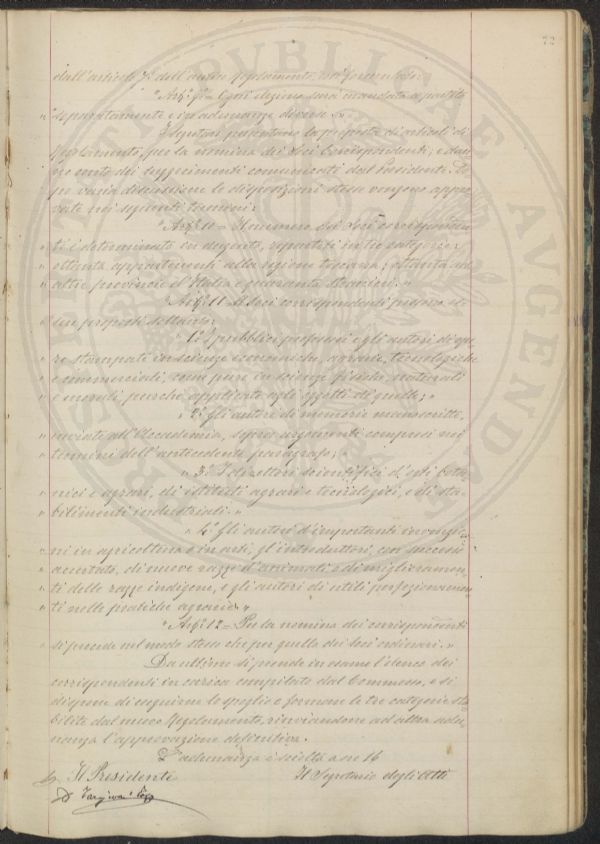 72
dall'articolo 7º dell'antico Regolamento, non
"Artº 9º = Ogni elezione sarà mandata a partito
"separatamente e in adunanze diverse."
I Segretari presentano la proposta di articoli di
Regolamento, per la nomina dei Soci Corrispondenti,
conto dei suggerimenti comunicati dal Presidente. Do
po varia discussione le disposizioni stesse vengono appro
vate nei seguenti termini:
"Artº 10 = Il numero dei Soci corrisponden
" ti è determinato in dugento, repartiti in tre categorie:
" ottanta appartenenti alla regione toscana; ottanta ad
" altre provincie d'Italia e quaranta stranieri."
"Artº 11 = A Soci corrispondenti possono es
" ser proposti soltanto:
" 1º I pubblici professori e gli autori di ope
" re stampate in scienze economiche, agrarie, tecnologiche
" e commerciali, come pure in scienze fisiche, naturali
" e morali, purché applicate agli oggetti di quelle;"
" 2º Gli autori di memorie manoscritte,
" inviate all'Accademia, sopra argomenti compresi nei
" termini dell'antecedente paragrafo;"
" 3º I direttori scientifici d'orti bota
" nici e agrari, di istituti agrari e tecnologici, e di sta
" bilimenti industriali."
" 4º Gli autori d'importanti invenzio
" ni in agricoltura o in arti, gl'introduttori, con successo
" accertato, di nuove razze d'animali o di miglioramen
" ti delle razze indigene, e gli autori di utili perfezionamen
" ti nelle pratiche agrarie."
"Artº 12 = Per la nomina dei corrispondenti
" si procede nel modo stesso che per quella dei Soci ordinari."
Da ultimo si prende in esame l'elenco dei
corrispondenti in carica compilato dal Commesso, e si
dispone di eseguirne lo spoglio e formare le tre categorie sta
bilite dal nuovo Regolamento, rinviandone ad altra adu
nanza l'approvazione definitiva.
L'adunanza è sciolta a ore 16
Il Presidente Il Segretario degli Atti